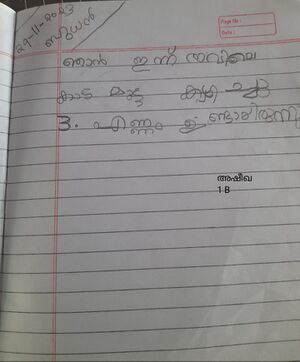 29-11-2023
ബുധൻ
Page No:
Date:
ഞാൻ ഇന്ന് രാവിലെ
കാട മുട്ട
3. എണ്ണം ഉണ്ടായിരുന്നു
അഷീഖ
1 B